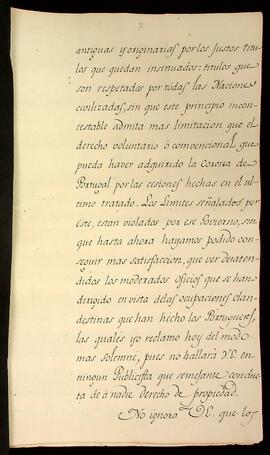 antiguas y originarias por los Justos titu
los que quedan insinuados: titulos que
son respetados por todas las Nacione
civilizadas, sin que este principio incon
testable admita mas limitacion que el
derecho voluntario ò convencional que
pueda haver adquirido la Corona de
Portugal por las cesiones hechas en el ul
timo tratado. Los Limites señalados por
éste, estan violados por ese Govierno, sin
que hasta ahora hayamos podido con
seguir mas satisfaccion, que ver desaten
didos los moderados oficios que se han
dirigido en vista de las ocupaciones clan
destinas que han hecho los Portugueses
las quales yo reclamo hoy del modo
mas solemne, pues no hallará V.E. en
ningun Publicista que semejante conduc
ta dé á nadie derecho de propiedad.
No ignora V.E. que los